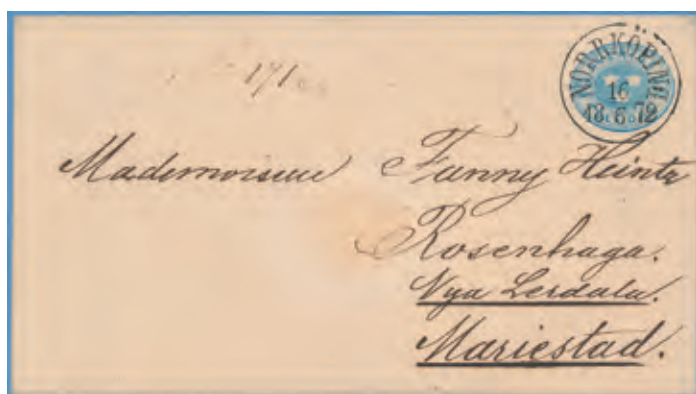 171
NORRKÖPING
16
18 6 72
Mademoiselle Fanny Heintz
Rosenhaga.
Nya Lerdala.
Mariestad.